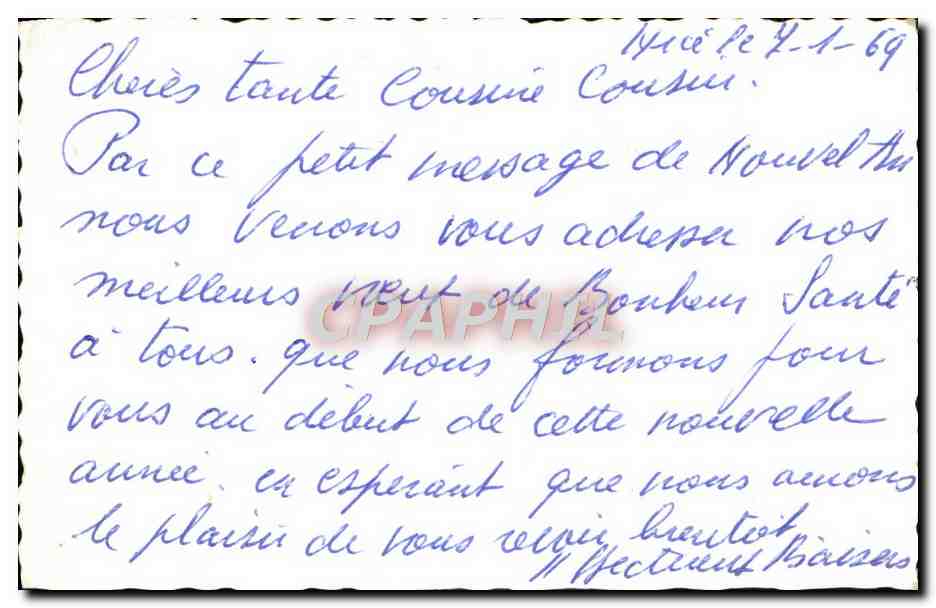 Nice le 7-1-69
Cheres tante Cousine Cousin.
Par ce petit message de Nouvel An
nous venons vous adresser nos
meilleurs veux de Bonheur Santé
CPAPHIL
à tous. que nous formons pour
vous au début de cette nouvelle
année. en espérant que nous aurons
le plaisir de vous revoir bientôt
Baisers